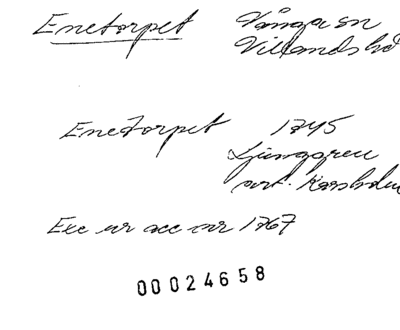 Enetorpet Vånga sn
Villands hd
Enetorpet 1745
Ljunggren
art. Karsholm
Exc ur acc nr 1767
00024658